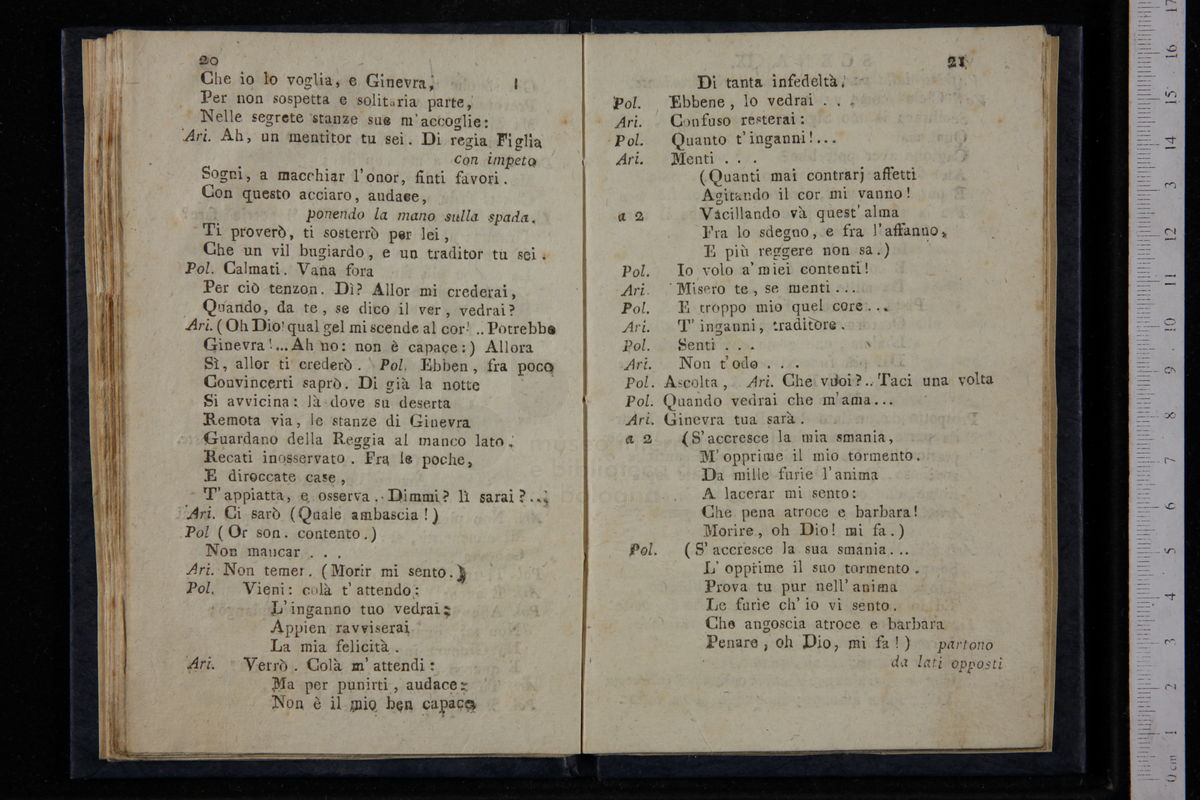 20
Che io lo voglia, e Ginevra,
Per non sospetta e solitaria parte,
Nelle segrete stanze sue m'accoglie:
Ari. Ah, un mentitor tu sei. Di regia Figlia
con impeto
Sogni, a macchiar l'onor, finti favori.
Con questo acciaro, audace,
ponendo la mano sulla spada.
Ti proverò, ti sosterrò per lei,
Che un vil bugiardo, e un traditor tu sei.
Pol. Calmati. Vana fora
Per ciò tenzon. Dì? Allor mi crederai,
Quando, da te, se dico il ver, vedrai?
Ari. (Oh Dio! qual gel mi scende al cor! .. Potrebbe
Ginevra!...Ah no: non è capace:) Allora
Sì, allor ti crederò. Pol. Ebben, fra poco
Convincerti saprò. Di già la notte
Si avvicina: là dove su deserta
Remota via, le stanze di Ginevra
Guardano della Reggia al manco lato.
Recati inosservato. Fra le poche,
E diroccate case,
T'appiatta, e osserva. Dimmi? lì sarai?...
Ari. Ci sarò (Quale ambascia!)
Pol (Or son. contento.)
Non mancar . . .
Ari. Non temer. (Morir mi sento.)
Pol. Vieni: colà t'attendo:
L'inganno tuo vedrai:
Appien ravviserai
La mia felicità.
Ari. Verrò. Colà m'attendi:
Ma per punirti, audace:
Non è il mio ben capace
21
Di tanta infedeltà.
Pol. Ebbene, lo vedrai . . .
Ari. Confuso resterai:
Pol. Quanto t'inganni!...
Ari. Menti . . .
(Quanti mai contrarj affetti
Agitando il cor mi vanno!
a 2 Vacillando và quest'alma
Fra lo sdegno, e fra l'affanno,
E più reggere non sa.)
Pol. Io volo a'miei contenti!
Ari. Misero te, se menti...
Pol. E troppo mio quel core...
Ari. T'inganni, traditore.
Pol. Senti . . .
Ari. Non t'odo . . .
Pol. Ascolta, Ari. Che vuoi?.. Taci una volta
Pol. Quando vedrai che m'ama...
Ari. Ginevra tua sarà.
a 2 (S'accresce la mia smania,
M'opprime il mio tormento.
Da mille furie l'anima
A lacerar mi sento:
Che pena atroce e barbara!
Morire, oh Dio! mi fa.)
Pol. (S'accresce la sua smania...
L'opprime il suo tormento.
Prova tu pur nell'anima
Le furie ch'io vi sento.
Che angoscia atroce e barbara
Penare, oh Dio, mi fa!) partono
da lati opposti
0 cm 1 2 3 4 5 6 7 8 9 10 11 12 13 14 15 16 17